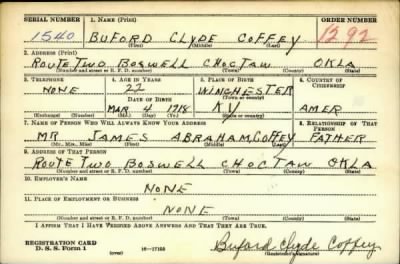 SERIAL NUMBER 1. NAME (Print) ORDER NUMBER
1540 BUFORD CLYDE COFFEY 1292
(First) (Middle) (Last)
2. ADDRESS (Print)
ROUTE TWO BOSWELL CHOCTAW OKLA
(Number and street or R. F. D. number) (Town) (County) (State)
3. TELEPHONE 4. AGE IN YEARS 5. PLACE OF BIRTH 6. COUNTRY OF CITIZENSHIP
NONE 22 WINCHESTER
DATE OF BIRTH (Town or county)
MAR 4 1918 KY AMER
(Exchange) (Number) (Mo.) (Day) (Yr.) (State or country)
7. NAME OF PERSON WHO WILL ALWAYS KNOW YOUR ADDRESS 8. RELATIONSHIP OF THAT PERSON
MR JAMES ABRAHAM COFFEY FATHER
(Mr., Mrs., Miss) (First) (Middle) (Last)
9. ADDRESS OF THAT PERSON
ROUTE TWO BOSWELL CHOCTAW OKLA
(Number and street or R. F. D. number) (Town) (County) (State)
10. EMPLOYER'S NAME
NONE
11. PLACE OF EMPLOYMENT OR BUSINESS
NONE
(Number and street or R. F. D. number) (Town) (County) (State)
I AFFIRM THAT I HAVE VERIFIED ABOVE ANSWERS AND THAT THEY ARE TRUE.
REGISTRATION CARD
D. S. S. Form 1 16—17105 Buford Clyde Coffey
(Registrant's signature)